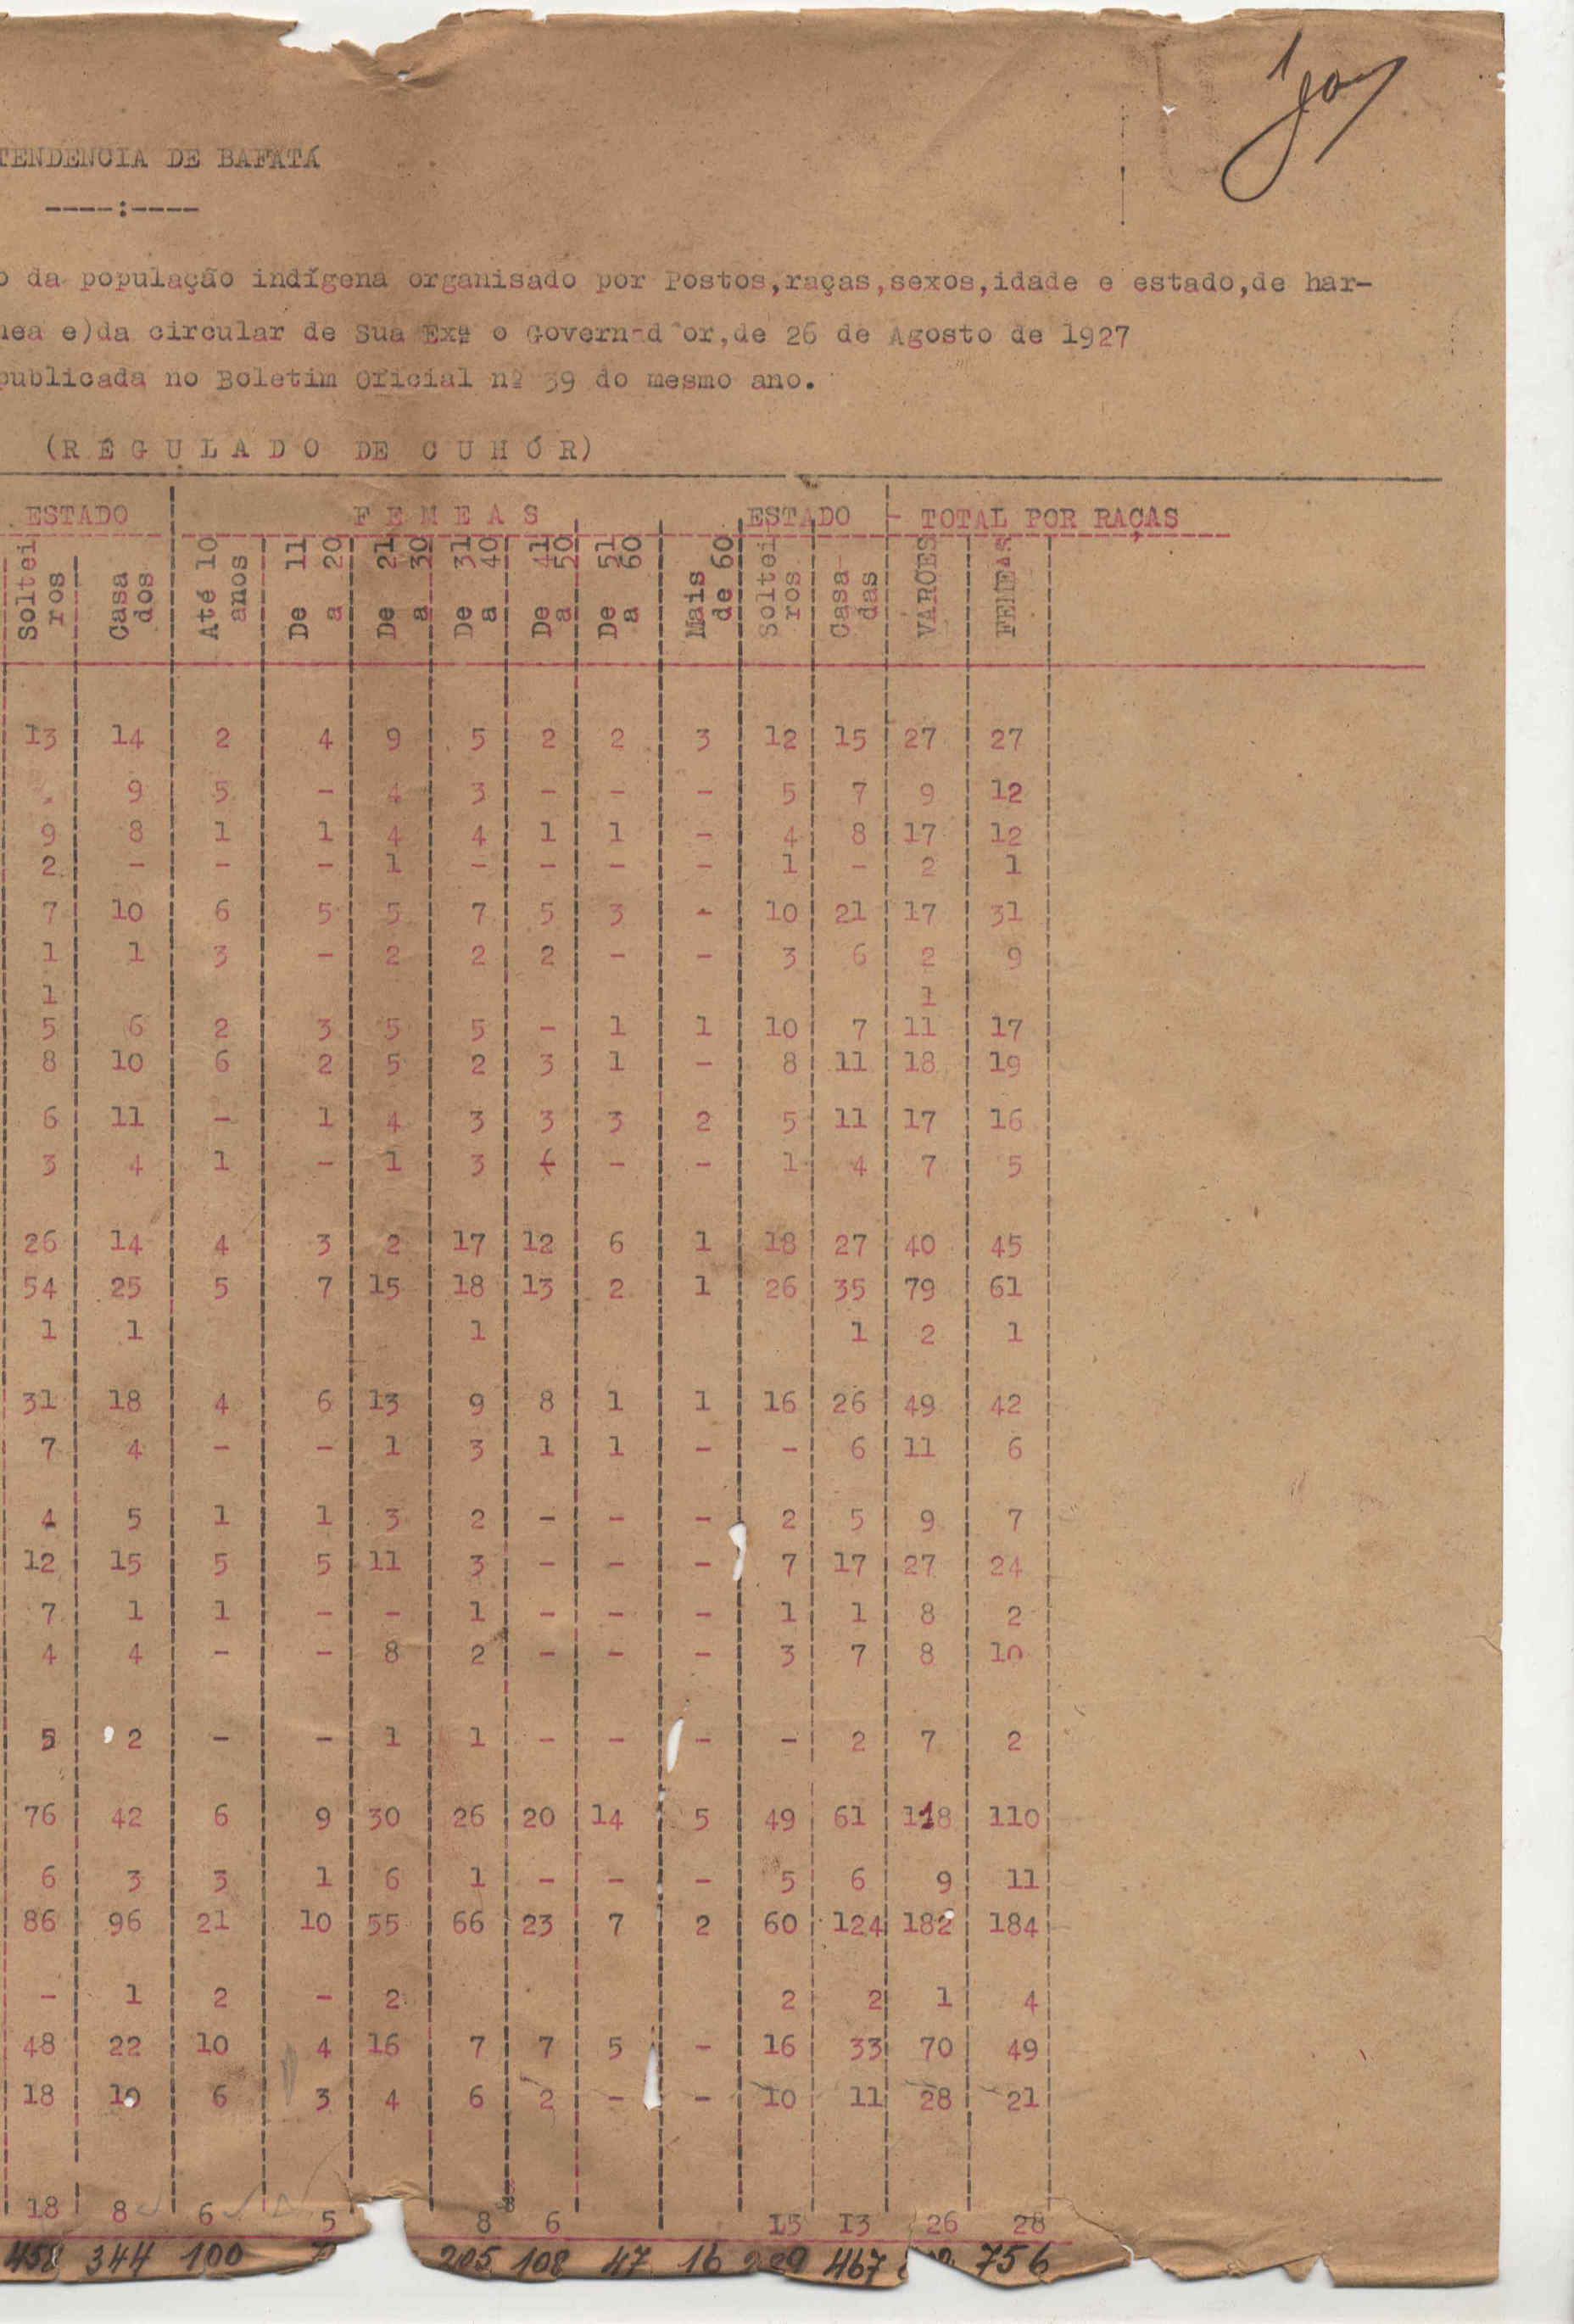 TENDENCIA DE BAFATÁ
----:----
o da população indígena organisado por Postos,raças,sexos,idade e estado,de har-
nea e)da circular de Sua Exª o Governad or,de 26 de Agosto de 1927
publicada no Boletim Oficial nº 39 do mesmo ano.
(R E G U L A D O DE C U H Ó R)
ESTADO F E M E A S ESTADO TOTAL POR RAÇAS
Soltei ros Casa dos Até 10 anos De 11 a 20 De 21 a 30 De 31 a 40 De 41 a 50 De 51 a 60 Mais de 60 Soltei ros Casa- das VARÕES FEMEAS
13 14 2 4 9 5 2 2 3 12 15 27 27
9 5 - 4 3 - - - 5 7 9 12
9 8 1 1 4 4 1 1 - 4 8 17 12
2 - - - 1 - - - - 1 - 2 1
7 10 6 5 5 7 5 3 - 10 21 17 31
1 1 3 - 2 2 2 - - 3 6 2 9
1 1
5 6 2 3 5 5 - 1 1 10 7 11 17
8 10 6 2 5 2 3 1 - 8 11 18 19
6 11 - 1 4 3 3 3 2 5 11 17 16
3 4 1 - 1 3 - - 1 4 7 5
26 14 4 3 2 17 12 6 1 18 27 40 45
54 25 5 7 15 18 13 2 1 26 35 79 61
1 1 1 1 2 1
31 18 4 6 13 9 8 1 1 16 26 49 42
7 4 - - 1 3 1 1 - - 6 11 6
4 5 1 1 3 2 - - - 2 5 9 7
12 15 5 5 11 3 - - - 7 17 27 24
7 1 1 - - 1 - - - 1 1 8 2
4 4 - - 8 2 - - - 3 7 8 10
5 2 - - 1 1 - - - - 2 7 2
76 42 6 9 30 26 20 14 5 49 61 118 110
6 3 3 1 6 1 - - - 5 6 9 11
86 96 21 10 55 66 23 7 2 60 124 182 184
- 1 2 - 2 2 2 1 4
48 22 10 4 16 7 7 5 - 16 33 70 49
18 10 6 3 4 6 2 - - 10 11 28 21
18 8 6 5 8 6 15 13 26 28
458 344 100 205 108 47 16 467 756